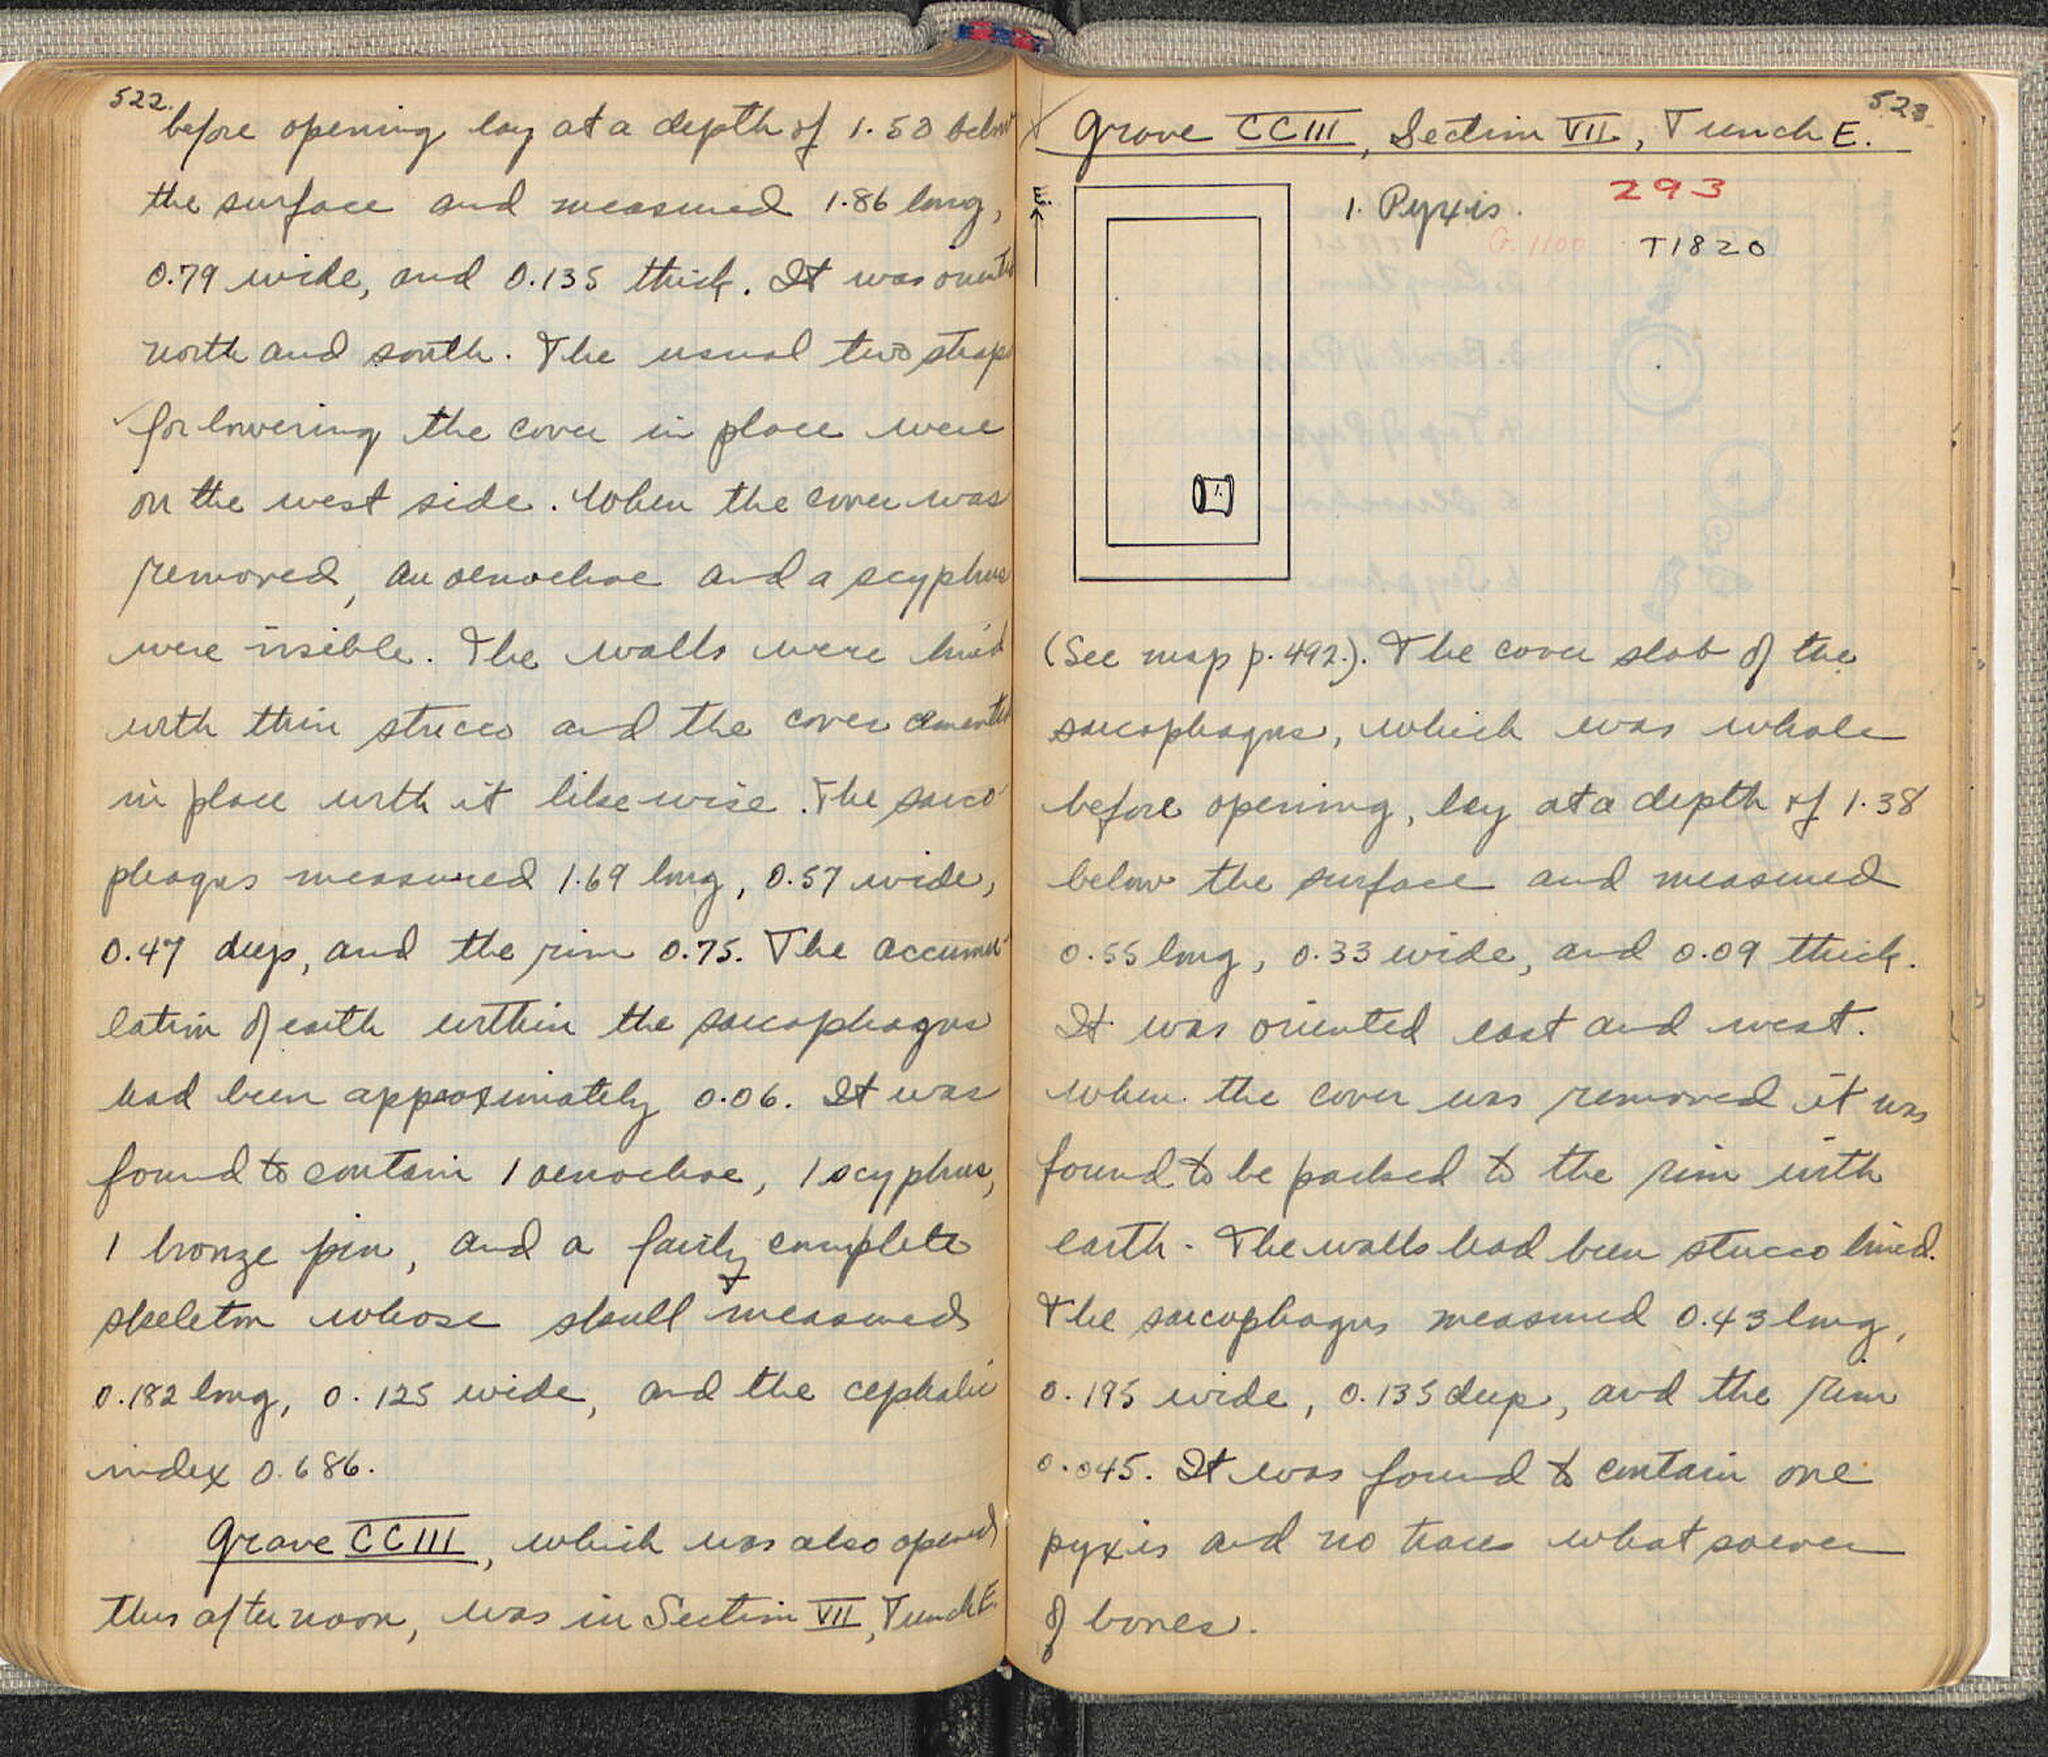 522.
before opening lay at a depth of 1.50 below
the surface and measured 1.86 long,
0.79 wide, and 0.135 thick. It was oriented
north and south. The usual two straps
for lowering the cover in place were
on the west side. When the cover was
removed, an oenochoe and a scyphus
were visible. The walls were lined
with thin stucco and the cover cemented
in place with it likewise. The sarco-
phagus measured 1.69 long, 0.57 wide,
0.47 deep, and the rim 0.75. The accumu-
lation of earth within the sarcophagus
had been approximately 0.06. It was
found to contain 1 oenochoe, 1 scyphus,
1 bronze pin, and a fairly complete
skeleton whose skull measured
0.182 long, 0.125 wide, and the cephalic
index 0.686.
Grave CCIII, which was also opened
this afternoon, was in Section VII, Trench E.
523.
Grave CCIII, Section VII, Trench E.
E.
1. Pyxis. 293
G. 1100 T1820
1.
(See map p. 492.). The cover slab of the
sarcophagus, which was whole
before opening, lay at a depth of 1.38
below the surface and measured
0.55 long, 0.33 wide, and 0.09 thick.
It was oriented east and west.
When the cover was removed it was
found to be packed to the rim with
earth. The walls had been stucco lined.
The sarcophagus measured 0.43 long,
0.195 wide, 0.135 deep, and the rim
0.045. It was found to contain one
pyxis and no traces what soever
of bones.